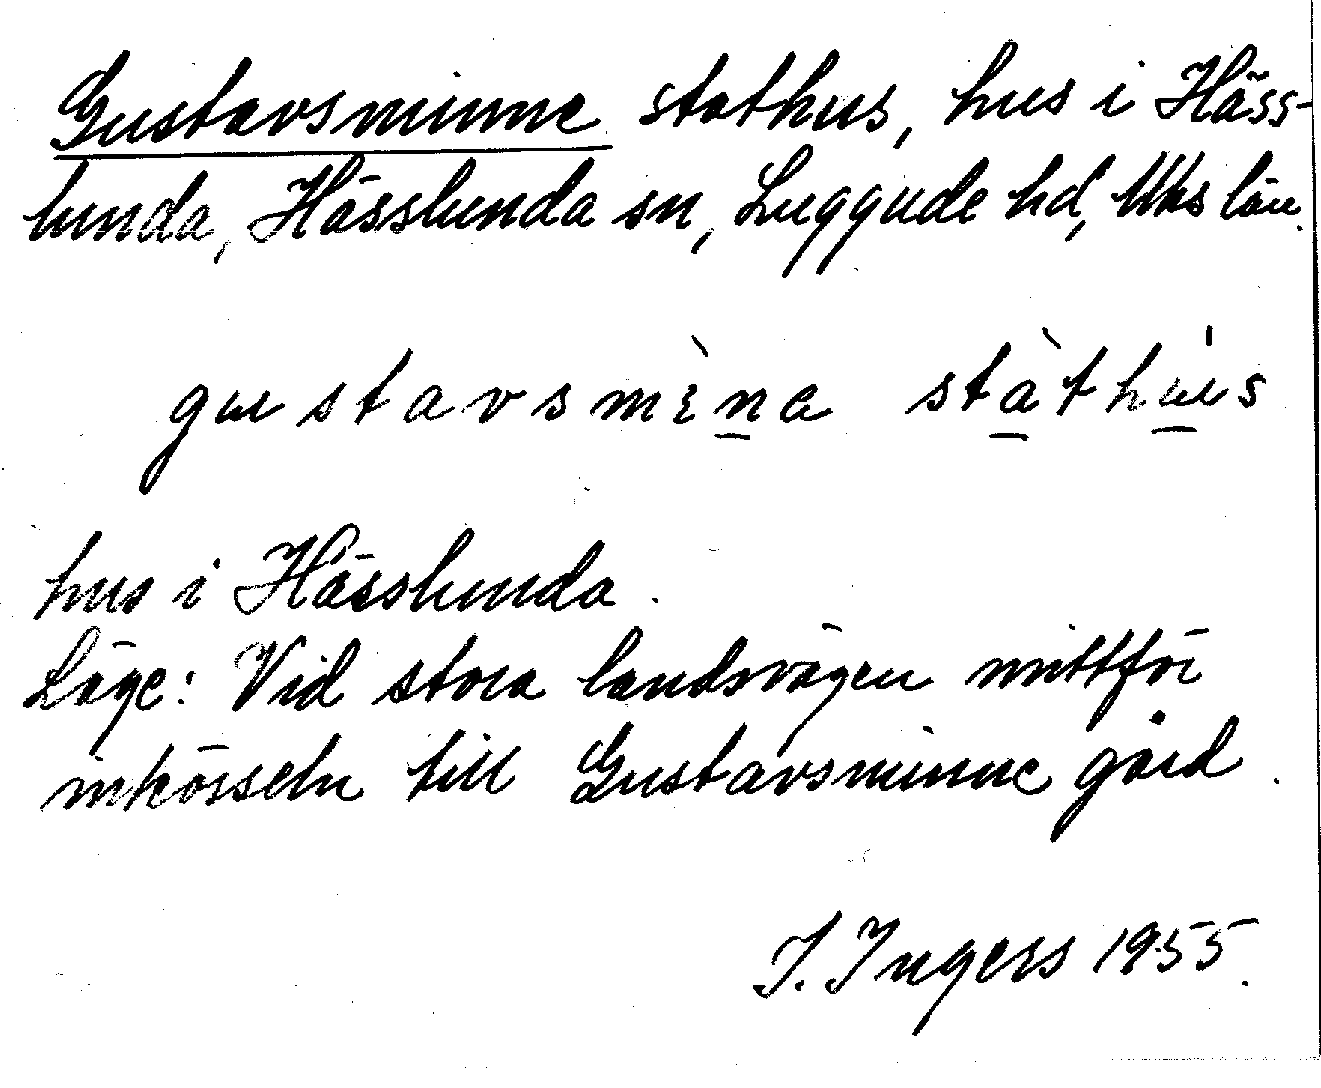 Gustavsminne stathus, hus i Häss-
lunda, Hässlunda sn, Luggude hd, Mhs län.
gustavsmὲna stàthús
hus i Hässlunda.
Läge: Vid stora landsvägen mittför
inkörseln till Gustavsminne gård.
I. Ingers 1955.